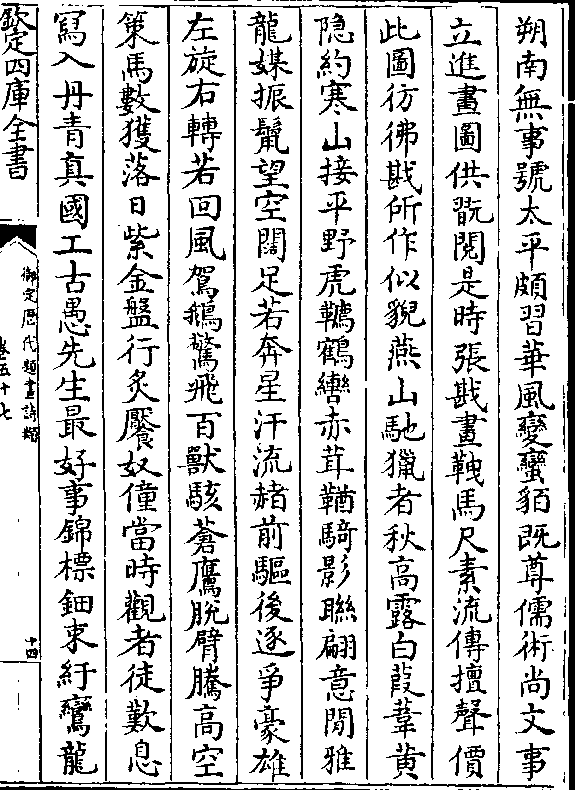 朔南無事號太平頗習華風變蠻貊既尊儒術尚文事
立進畫圖供翫閱是時張戡畫鞍馬尺素流傳擅聲價
此圖彷彿戡所作似貌燕山馳獵者秋高露白葭葦黃
隐約寒山接平野虎韉鶴轡赤茸鞧騎影聯翩意閒雅
龍媒振鬛望空闊足若奔星汗流赭前驅後逐爭豪雄
左旋右轉若回風鴐鵝驚飛百獸駭蒼鷹脫臂騰高空
策馬數獲落日紫金盤行炙饜奴僮當時觀者徒歎息
寫入丹青真國工古愚先生最好事錦標鈿束紆鸞龍
欽定四庫全書
御定歷代題畫詩類
卷五十七
十四